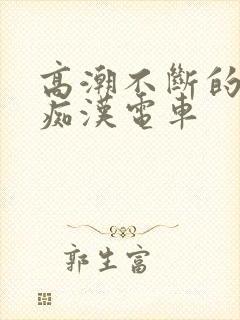 高潮不斷的
痴漢電車
郭生富